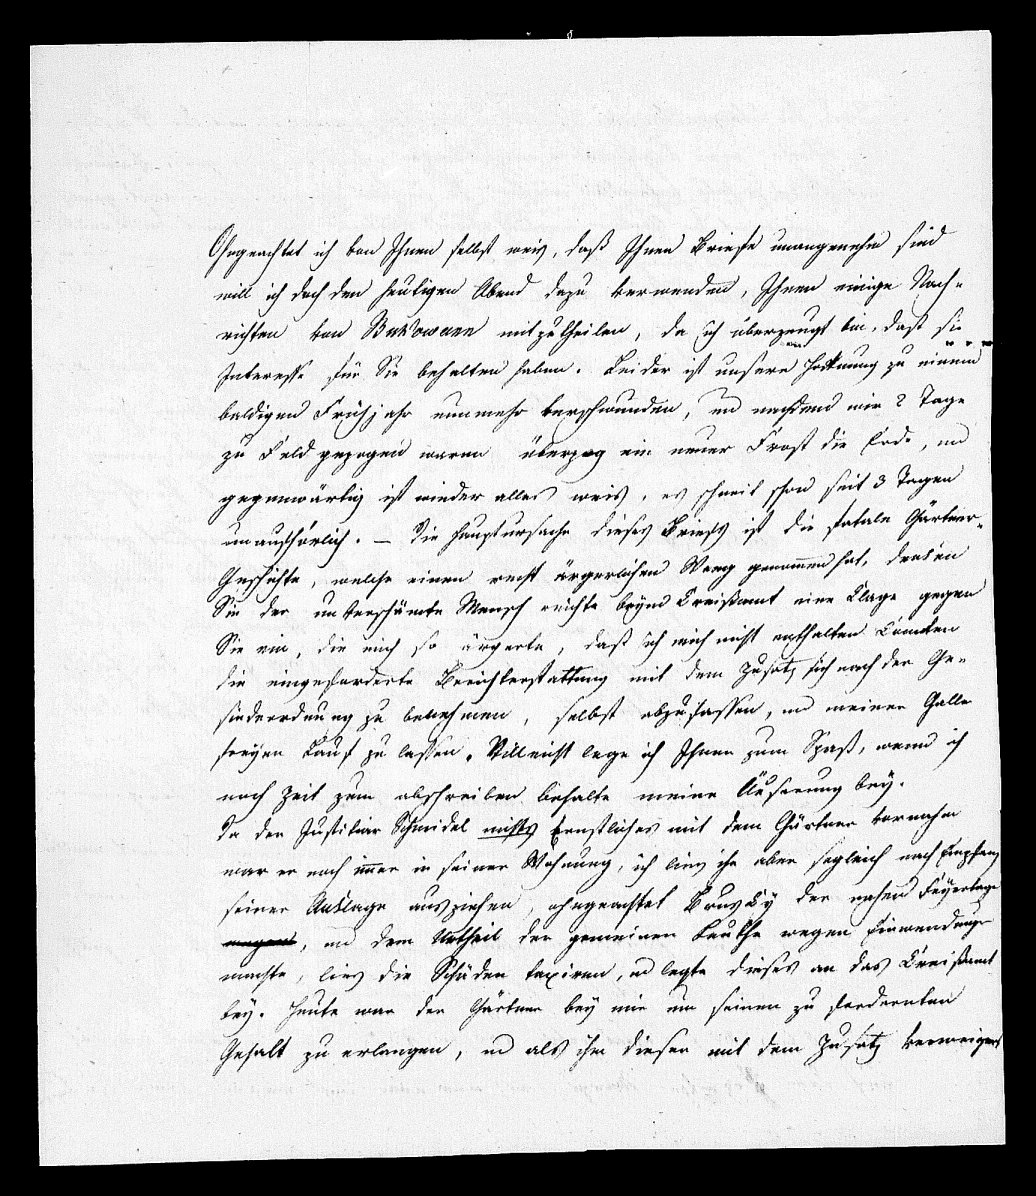 Ohgeachtet ich von Ihnen selbst weis, daß Ihnen Briefe unangenehm sind
will ich doch den heutigen Abend dazu verwenden, Ihnen einige Nach-
richten von Bukowann mitzutheilen, da ich überzeugt bin, daß sie
Interesse für Sie behalten haben. Leider ist unsere Hoffnung zu einem
baldigen Frühjahr nunmehr verschwunden, und nachdem wir 2 Tage
zu Feld gezogen waren überzog ein neuer Frost die Erde, und
gegenwärtig ist wieder alles weis, es schneit schon seit 3 Tagen
unaufhörlich. – Die Hauptursache dieses Briefs ist die fatale Gärtner-
Geschichte, welche einen recht ärgerlichen Weeg genommen hat,
Sie der unverschämte Mensch reichte beym Creißamt eine Clage gegen
Sie ein, die mich so ärgerte, daß ich mich nicht enthalten konnten
die eingeforderte Berichterstattung mit dem Zusatz sich nach der Ge-
sindeordnung zu benehmen, selbst abzufassen, und meiner Galle
freyen Lauf zu lassen. Villeicht lege ich Ihnen zum Spaß, wenn ich
noch Zeit zum abschreiben behalte meine Äuserung bey.
Da der Justitiar Schmidel nichts Ernstliches mit dem Gärtner vornahm
war er noch immer in seiner Wohnung, ich lies ihn aber sogleich nach Empfang
seiner Anklage ausziehen, ohngeachtet Brusky der nahen Feyertage
wegen, und dem Urtheil der gemeinen Leuthe wegen Einwendunge
machte, lies die Schäden taxiren, und legte dieses an das Creißamt
bey. Heute war der Gärtner bey mir um seinen zu fordernten
Gehalt zu erlangen, und als ihm dieser mit dem Zusatz verweigert